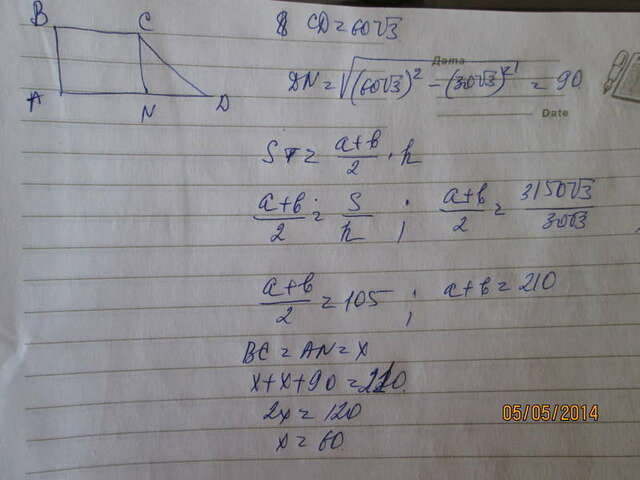 B C
A N D
CD = 60√3
Дата
DN = √((60√3)² - (30√3)²) = 90
Date
S = a+b/2 · h
a+b/2 = S/h ; a+b/2 = 3150√3/30√3
a+b/2 = 105 ; a+b = 210
BC = AN = x
x+x+90 = 210
2x = 120
x = 60
05/05/2014